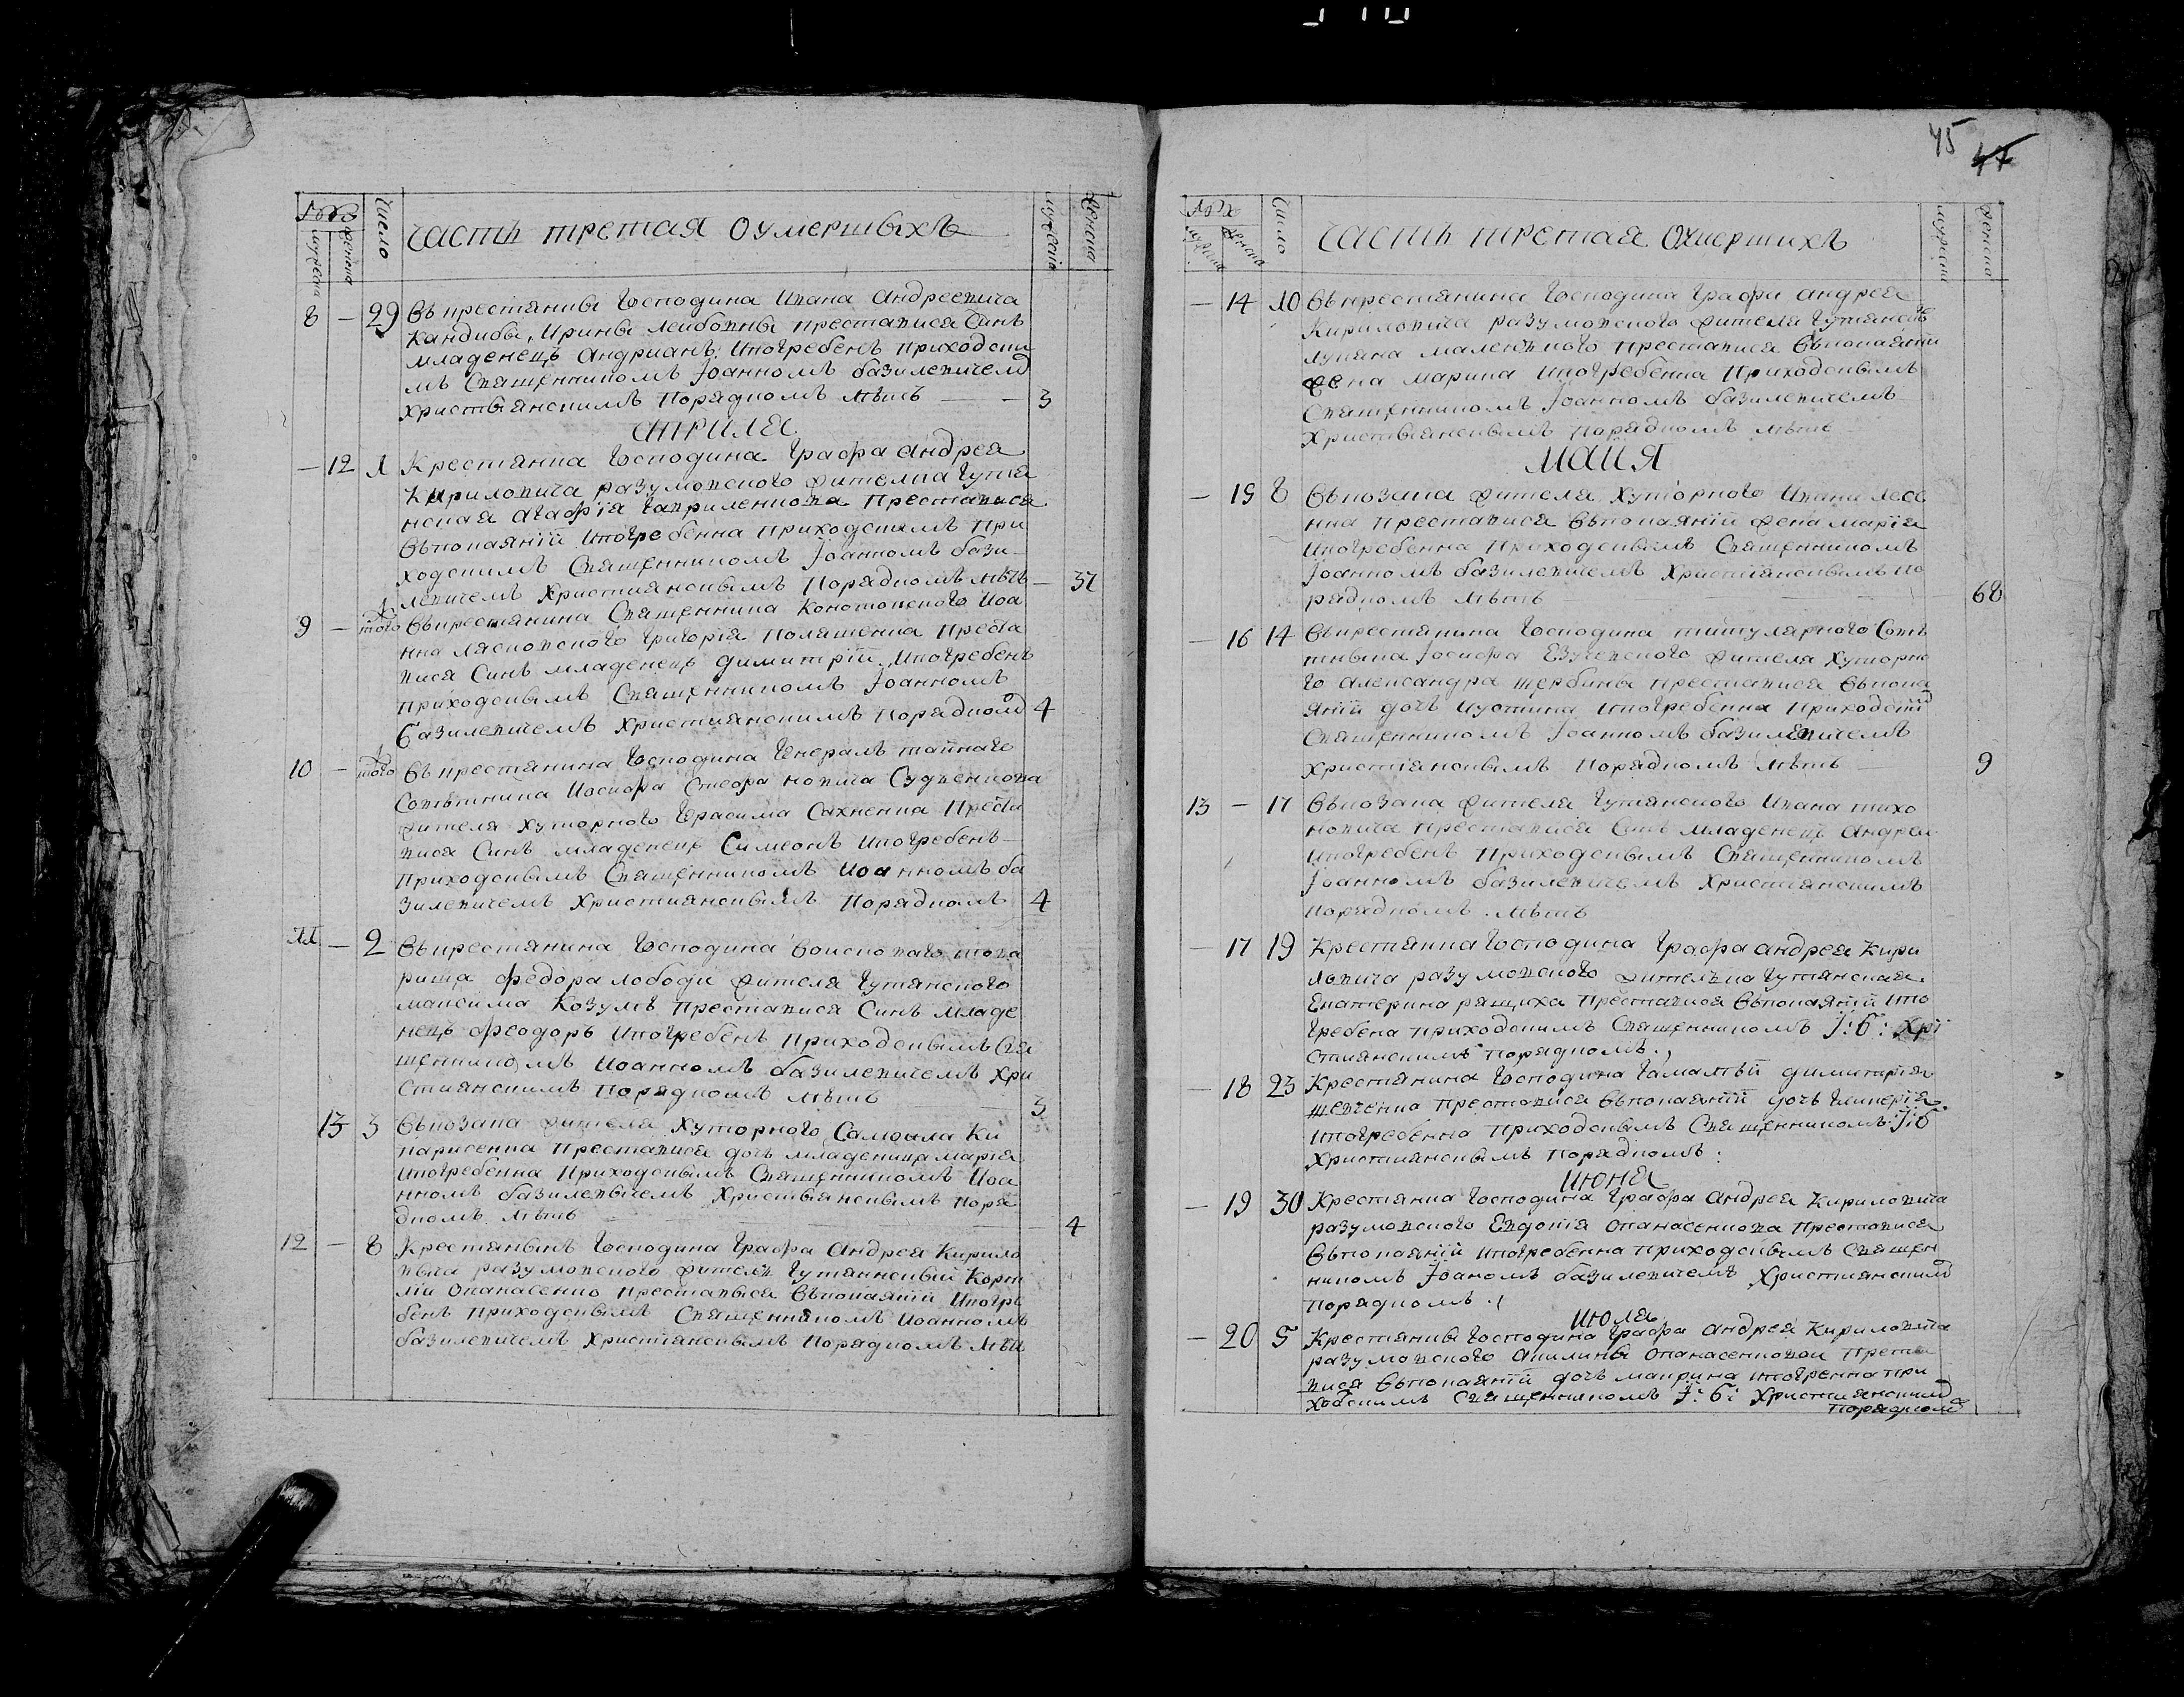 Число
мужеска
женска
часть третая оумершыхъ
мужеска
женска
8 — 29 Въ крестянкы Господина Ивана Андреевича
Кандибы, Ирины Лейбовны преставися Синъ
младенецъ Андрианъ, Ипогребенъ приходски
мъ Священникомъ Іоанномъ базилевичем
Христыянскимъ Порядкомъ лѣтъ — 3
Априля
— 12 1 Крестянка Господина Графа Андрея
Кириловича разумовского жителка Гутя
нская Агафія Гавриленкова Преставися
Въпокаяній Ипогребенна приходскимъ При
ходскимъ Священникомъ Іоанномъ бази
левичемъ Християнскымъ Порядкомъ лѣтъ — 37
9 — 1 того Въкрестянина Священника Конотопского Иоа
нна Лясковского Григорія Поляшенка Преста
вися Синъ младенецъ Димитрій, Ипогребенъ
приходскымъ Священникомъ Іоанномъ
базилевичемъ Християнскимъ Порядком 4
10 — 1 того Въ крестянина Господина Генералъ тайнаго
Совѣтника Иосифа Стефановича Судиенкова
жителя Хуторного Герасима Сахненка Преста
вися Синъ младенецъ Симеонъ Ипогребенъ
Приходскымъ Священникомъ Иоанномъ ба
зилевичемъ Християнскымъ Порядкомъ 4
11 — 2 Въкрестянина Господина Воисковаго това
рища Федора Лободи жителя Гутянского
Максима Козулѣ Преставися Синъ Младе
нецъ Феодоръ Ипогребенъ Приходскымъ Свя
щенникомъ Иоанномъ базилевичемъ Хри
стиянскимъ Порядкомъ лѣтъ — 3
13 3 Въкозака жителя Хуторного Самойла Ки
парисенка Преставися дочъ младеница Марія
Ипогребенна Приходскымъ Священникомъ Иоа
нномъ базилевычемъ Христыянскымъ Поря
дкомъ лѣтъ — 4
12 — 8 Крестянынъ Господина Графа Андрея Кирило
выча разумовского жителъ Гутянскый Корн
лій Опанасенко Преставыся Въпокаяній Ипогре
бенъ Приходскымъ Священникомъ Иоанномъ
базилевичемъ Християнскымъ Порядкомъ лѣтъ
45
47
Число
мужеска
женска
часть третая Оумершихъ
мужеска
женска
— 14 10 Въкрестянина Господина Графа Андрея
Кириловича разумовского жителя Гутянск
Лукяна Маленкого Преставися Въпокаяній
жена Марина Ипогребенна Приходскымъ
Священникомъ Іоанномъ базилевичемъ
Христыянскымъ Порядкомъ лѣтъ
Маия
— 15 8 Въкозака жителя Хуторного Ивана Леси
нка Преставися Въпокаяній жена Марія
Ипогребенна Приходскымъ Священникомъ
Іоанномъ базилевичемъ Христіянскымъ По
рядкомъ лѣтъ — 68
— 16 14 Въкрестянина Господина титулярного Совѣ
тныка Іосифа Езучевского жителя Хуторно
го Александра Щербины преставися Въпока
яній дочъ Иустина Ипогребенна Приходским
Священникомъ Іоанномъ базилевичемъ
Христіянскымъ Порядкомъ лѣтъ — 9
13 — 17 Въкозака жителя Гутянского Ивана тихо
новича Преставися Синъ младенецъ Андрей
Ипогребенъ Приходскымъ Священникомъ
Іоанномъ базилевичемъ Християнскимъ
Порядкомъ лѣтъ
— 17 19 Крестянка Господина Графа Андрея Кири
ловича разумовского жителъка Гутянская
Екатерина рящиха Преставися Въпокаяній Ипо
гребена Приходскимъ Священникомъ І: б: Хрі
стиянскимъ Порядкомъ.
— 18 23 Крестянина Господина Гамалѣй Димитрія
Шевченка Преставися Въпокаяній дочъ Гликерія
Ипогребенна Приходскымъ Священникомъ: І: б
Християнскымъ Порядкомъ:
Июня
— 19 30 Крестянка Господина Графа Андрея Кириловича
разумовского Евдотія Опанасенкова Преставися
Въпокаяній Ипогребенна Приходскымъ Священ
никомъ Іоаномъ базилевичемъ Християнским
Порядкомъ.
Июля
— 20 5 Крестянкы Господина Графа Андрея Кириловича
разумовского Акилины Опанасенковой Преста
вися Въпокаяній дочъ Маврина Ипогренна При
ходскимъ Священникомъ І: б: Християнским
Порядком